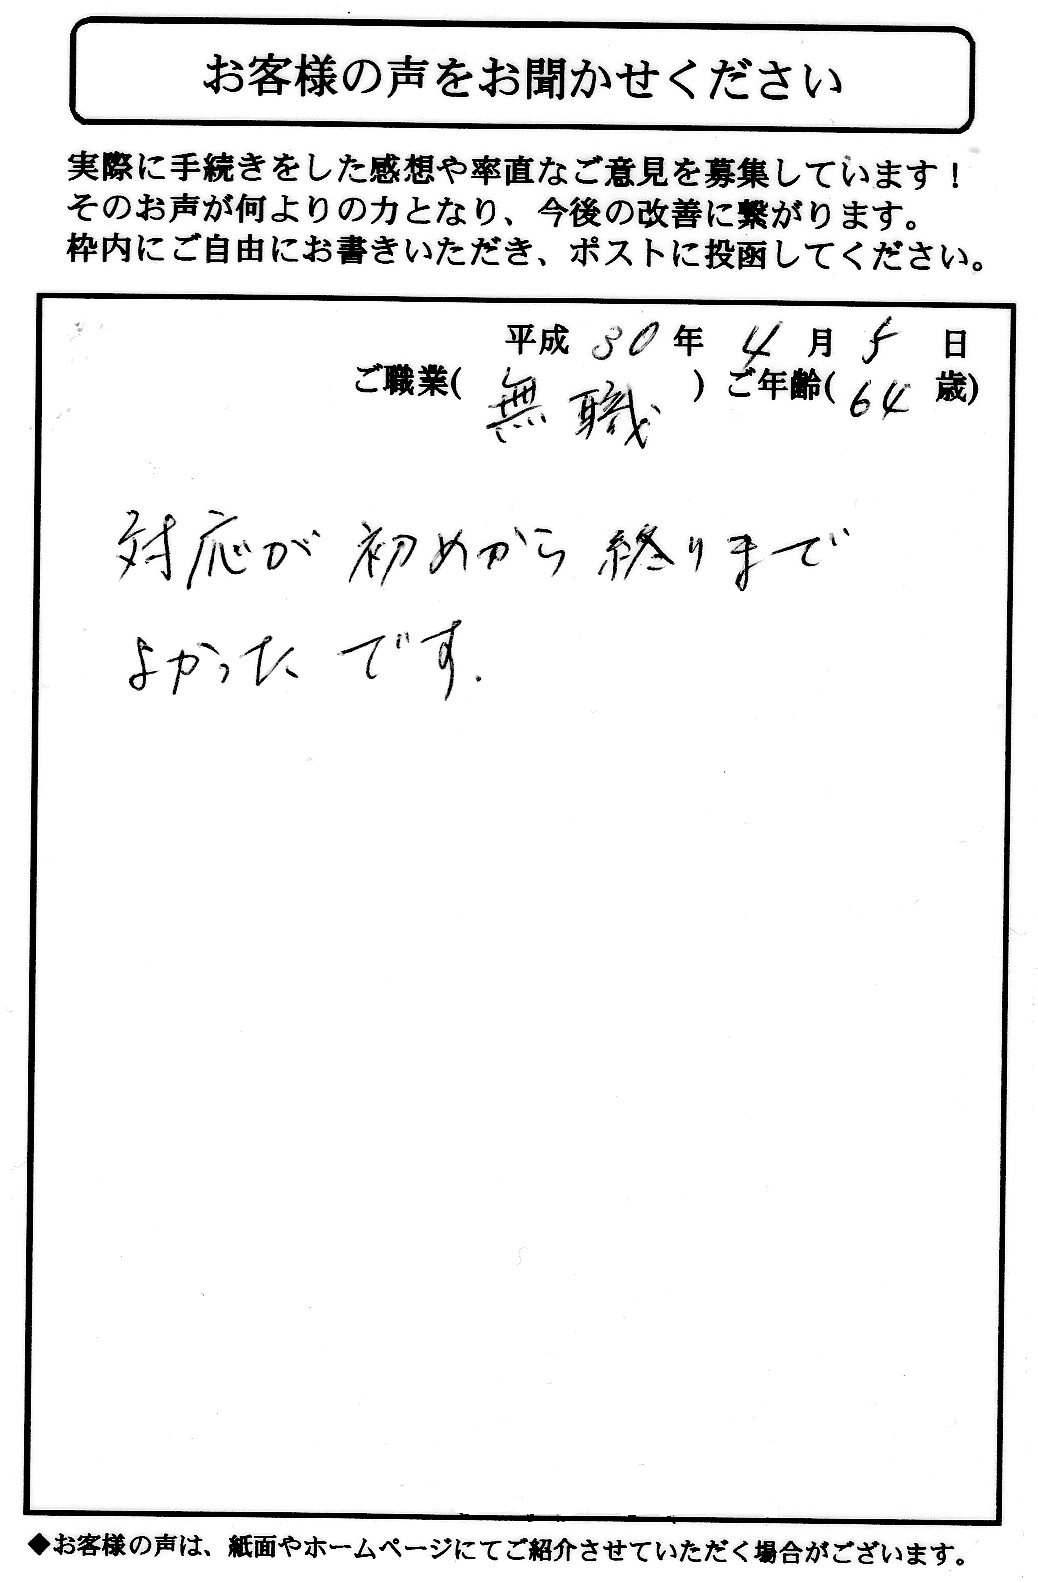 お客様の声をお聞かせください
実際に手続きをした感想や率直なご意見を募集しています!
そのお声が何よりの力となり、今後の改善に繋がります。
枠内にご自由にお書きいただき、ポストに投函してください。
平成 30 年 4 月 5 日
ご職業( 無職 ) ご年齢( 64 歳)
対応が 初めから 終りまで
よかった です.
◆お客様の声は、紙面やホームページにてご紹介させていただく場合がございます。